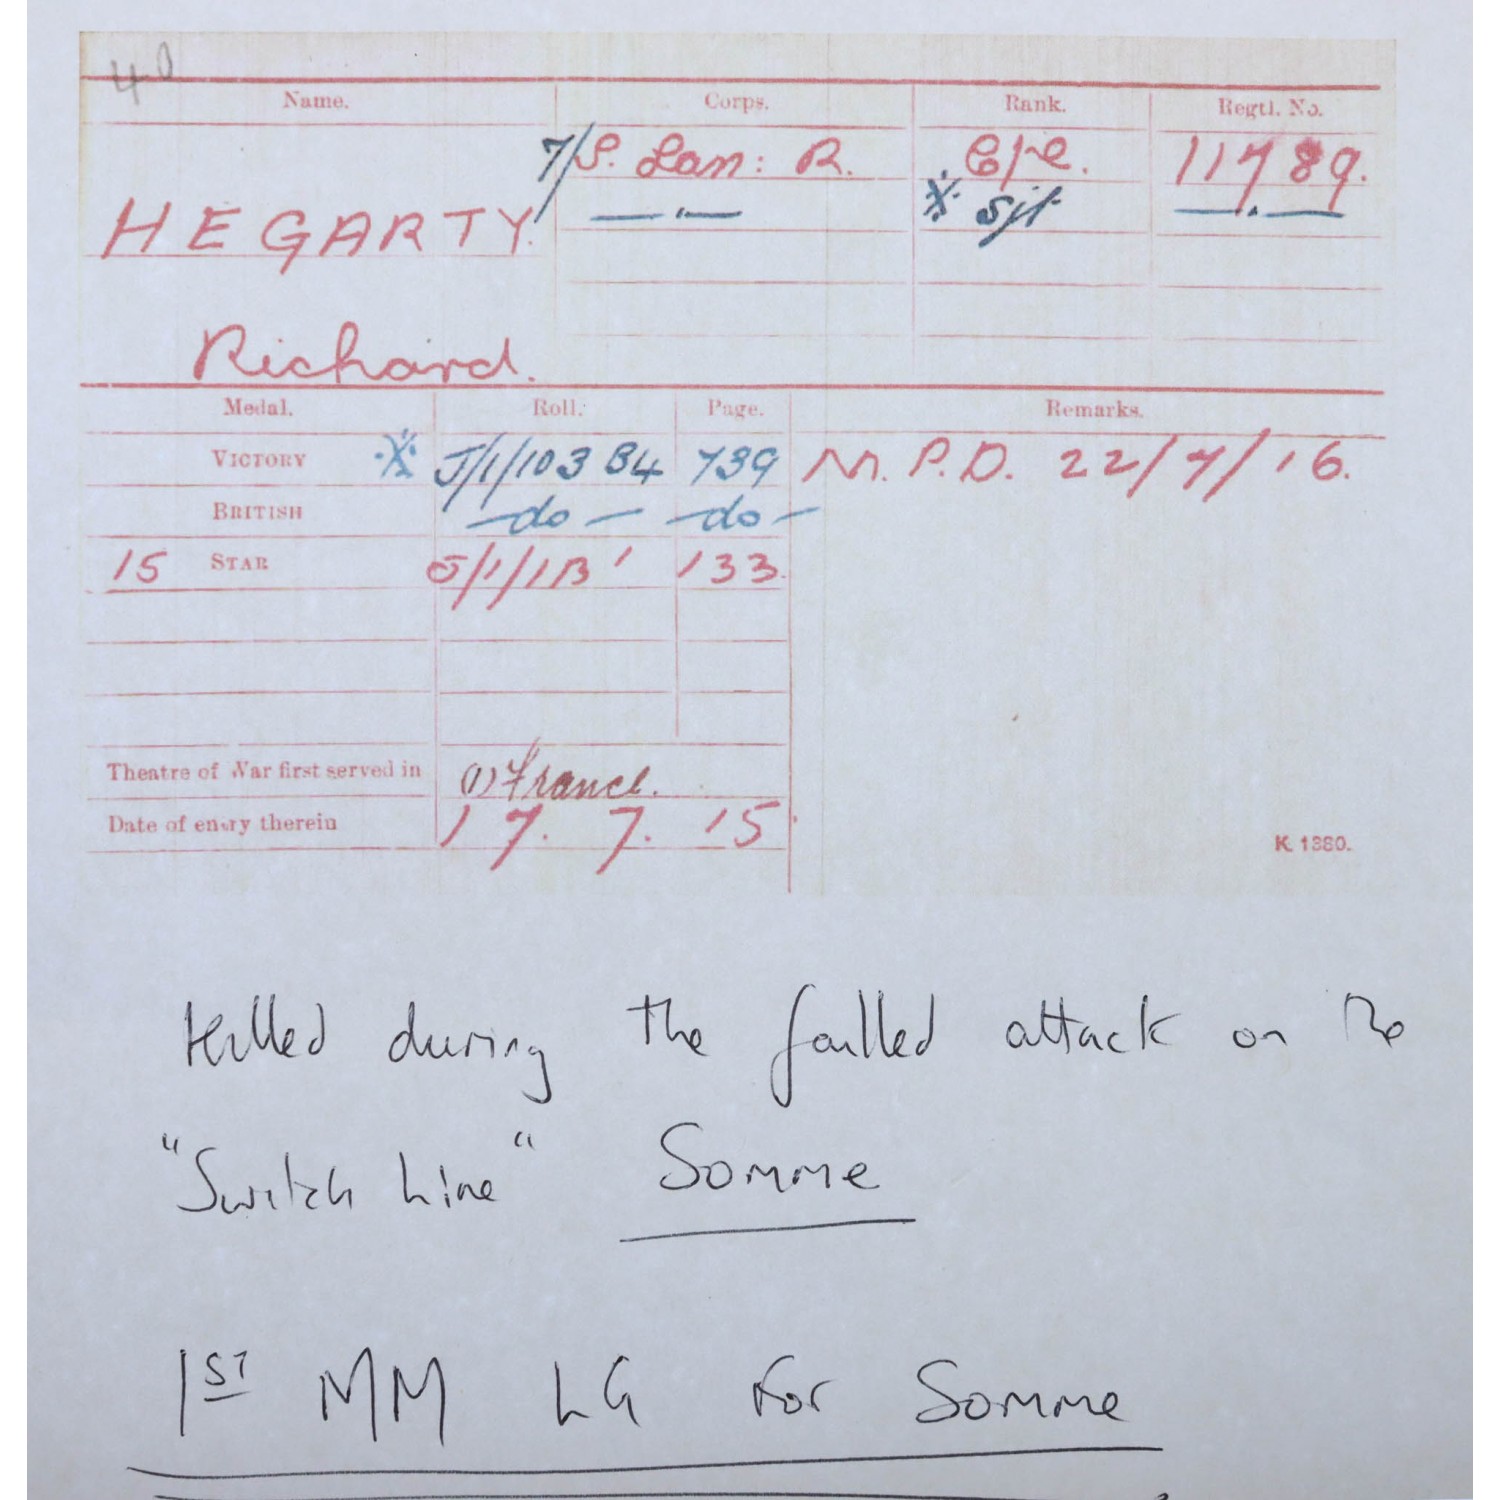 40
Name. Corps. Rank. Regtl. No.
7/S. Lan: R. Cpl. 11789.
HEGARTY. — " — ※ Sjt — . —
Richard.
Medal. Roll. Page. Remarks.
VICTORY ※ J/1/103 B4 739 M.P.D. 22/7/16.
BRITISH —do— —do—
15 STAR J/1/1B1 133.
Theatre of War first served in (1) France.
Date of entry therein 17. 7. 15
K. 1380.
Killed during the failled attack on the
"Switch Line" Somme
1ST MM LG For Somme